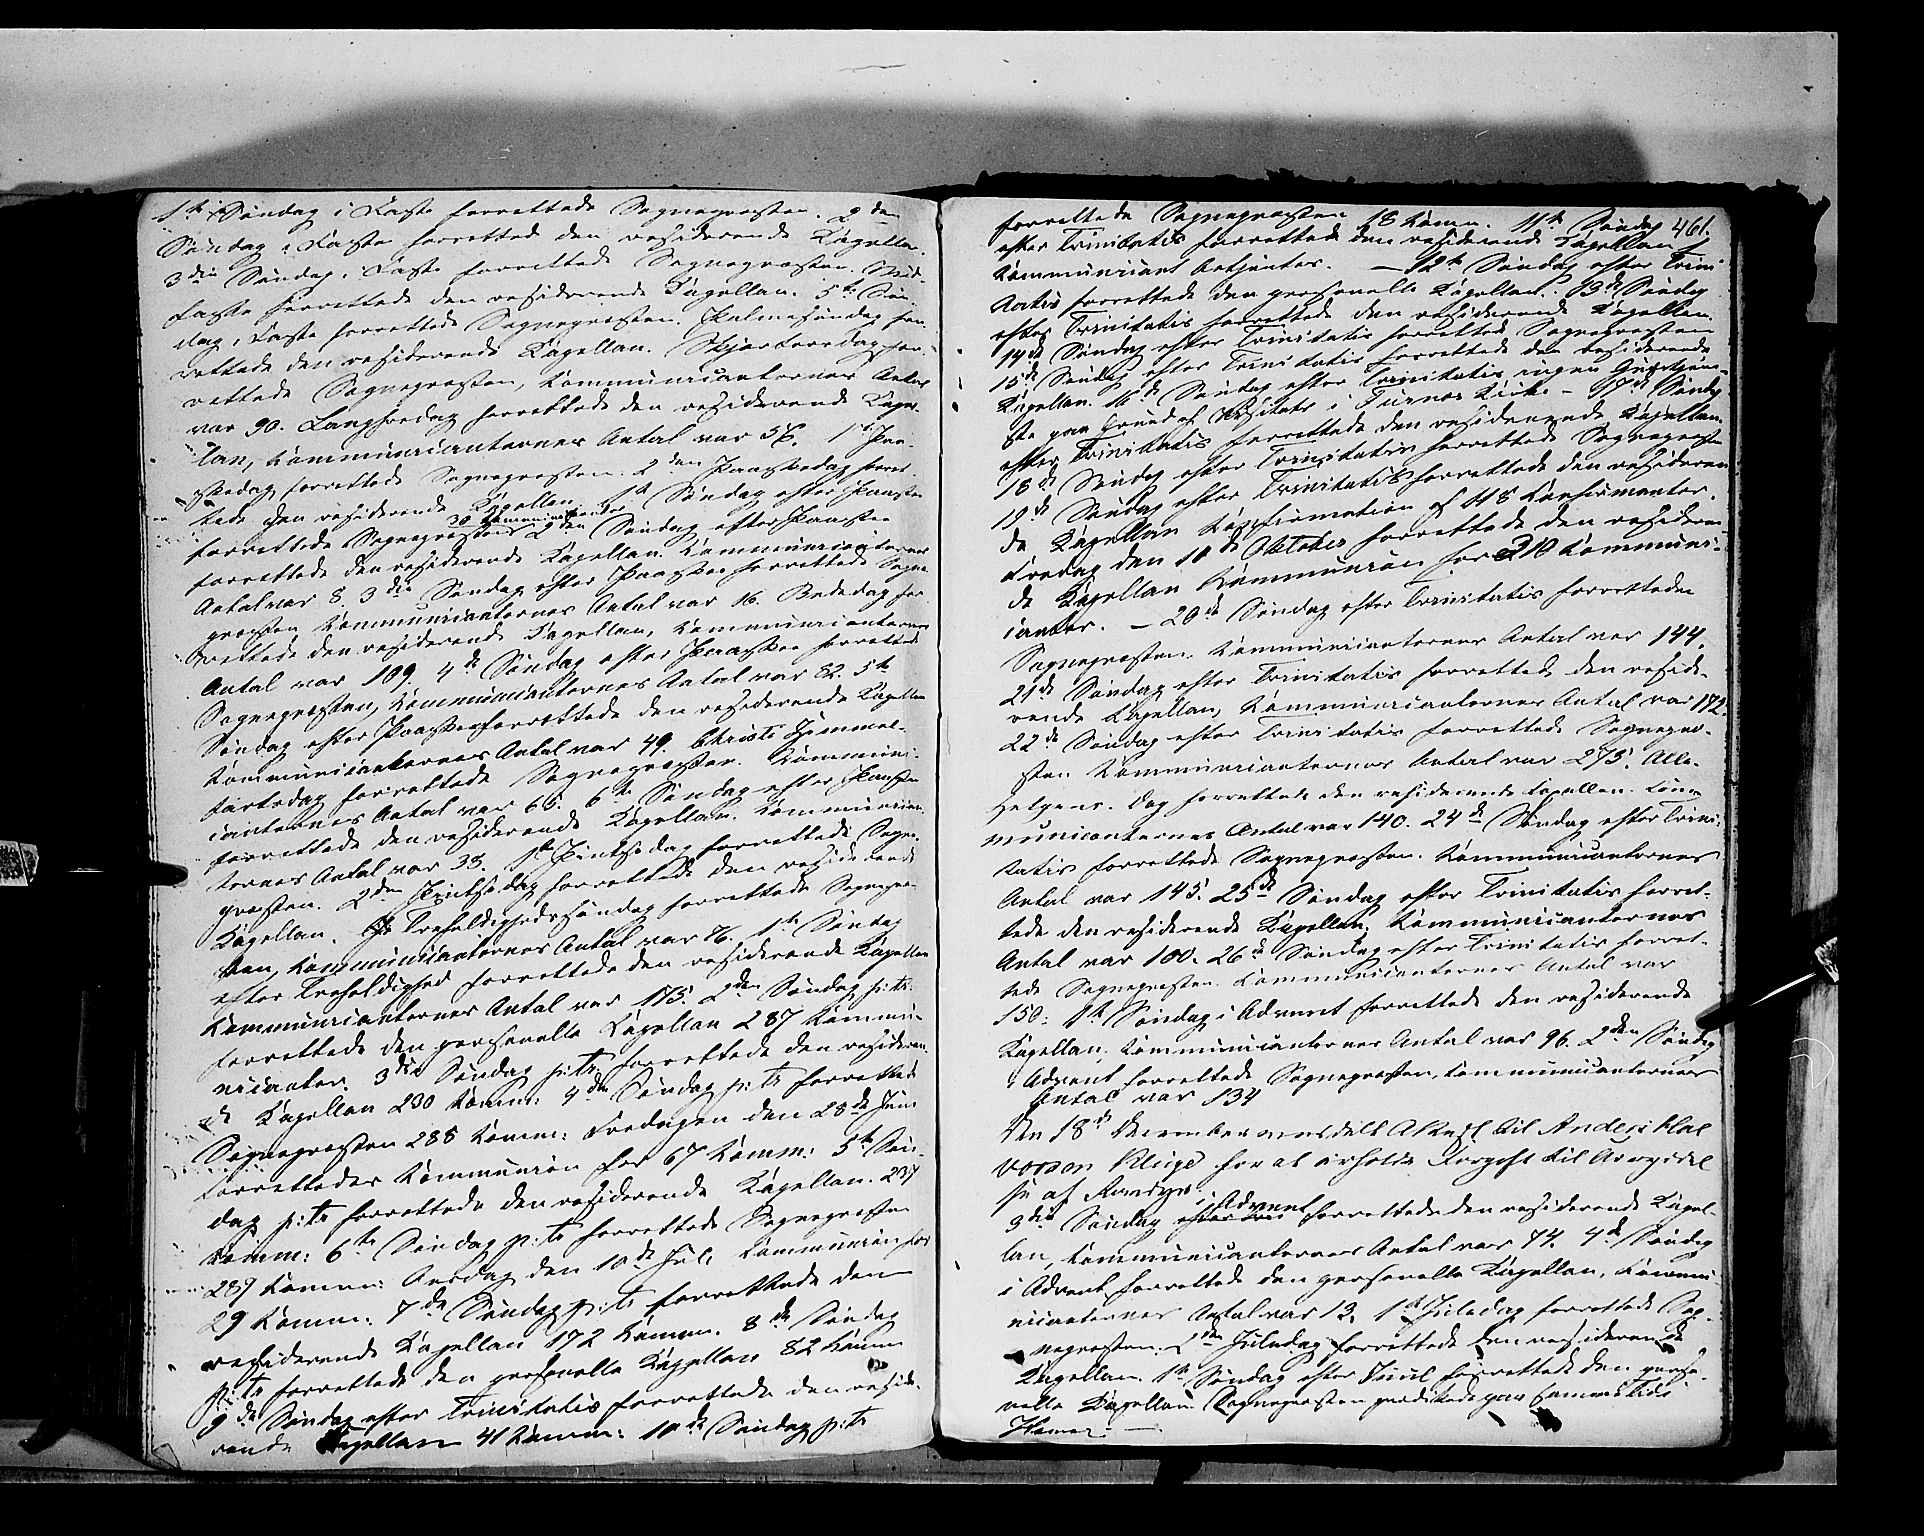 1ste Søndag i Faste forrettede Sognepræsten. 2den
Søndag i Faste forrettede den residerende Kapellan.
3die Søndag i Faste forrettede Sognepræsten. Mid-
faste forrettede den residerende Kapellan. 5te Søn-
dag i Faste forrettede Sognepræsten. Palmesøndag for-
rettede den residerende Kapellan. Skjærtorsdag for-
rettede Sognepræsten, Kommunicanternes Antal
var 90. Langfredag forrettede den residerende Kapel-
lan, Kommunicanternes Antal var 56. 1ste Paa-
skedag forrettede Sognepræsten. 2den Paaskedag forret-
tede den residerende Kapellan. 1ste Søndag efter Paaske
forrettede Sognepræsten 30 Kommunicanter 2den Søndag efter Paaske
forrettede den residerende Kapellan. Kommunicanternes
Antal var 8. 3die Søndag efter Paaske forrettede Sogne-
præsten Kommunicanternes Antal var 16. Bededag for-
rettede den residerende Kapellan, Kommunicanternes
Antal var 109. 4de Søndag efter Paaske forrettede
Sognepræsten, Kommunicanternes Antal var 82. 5te
Søndag efter Paaske forrettede den residerende Kapellan
Kommunicanternes Antal var 49. Christi Himmel-
fartsdag forrettede Sognepræsten. Kommuni-
canternes Antal var 65. 6te Søndag efter Paaske
forrettede den residerende Kapellan. Kommunican-
ternes Antal var 33. 1ste Pintsedag forrettede Sogne-
præsten. 2den Pintsedag forrettede den residerende
Kapellan. Trefoldighedssøndag forrettede Sognepræ-
sten, Kommunicanternes Antal var 76. 1ste Søndag
efter Trefoldighed forrettede den residerende Kapellan
Kommunicanternes Antal var 175. 2den Søndag p: tr:
forrettede den personelle Kapellan 287 Kommu-
nicanter. 3die Søndag p: tr: forrettede den resideren-
de Kapellan 230 Komm: 4de Søndag p: tr: forrettede
Sognepræsten 288 Komm: Fredagen den 28de Juni
forrettedes Kommunion for 67 Komm: 5te Søn-
dag p: tr: forrettede den residerende Kapellan. 237
Komm: 6te Søndag p: tr: forrettede Sognepræsten
287 Komm: den 10de Juli Kommunion for
29 Komm: 7de Søndag p: tr: forrettede den
residerende Kapellan 172 Komm. 8de Søndag
p: tr: forrettede den personelle Kapellan 82 Komm
9de Søndag efter Trinitatis forrettede den reside-
rende Kapellan 41 Komm: 10de Søndag p: tr:
461.
forrettede Sognepræsten 18 Komm. 11te Søndag
efter Trinitatis forrettede den residerende Kapellan 1
Kommunicant betjentes. – 12te Søndag efter Trini-
tatis forrettede den personelle Kapellan. 13de Søndag
efter Trinitatis forrettede den residerende Kapellan.
14de Søndag efter Trinitatis forrettede Sognepræsten
15de Søndag efter Trinitatis forrettede den residerende
Kapellan. 16de Søndag efter Trinitatis ingen Gudstjene-
ste paa Grund af Visitats i Furnes Kirke – 17de Søndag
efter Trinitatis forrettede den residerende Kapellan.
18de Søndag efter Trinitatis forrettede Sognepræsten
19de Søndag efter Trinitatis forrettede den residerende
Kapellan Konfirmation af 118 Konfirmanter.
den 10de Oktober forrettede den resideren-
de Kapellan Kommunion for 210 Kommuni-
canter. – 20de Søndag efter Trinitatis forrettede
Sognepræsten. Kommunicanternes Antal var 144.
21de Søndag efter Trinitatis forrettede den reside-
rende Kapellan, Kommunicanternes Antal var 172.
22de Søndag efter Trinitatis forrettede Sognepræ-
sten Kommunicanternes Antal var 275. Alle-
helgens-Dag forrettede den residerende Kapellan. Kom-
municanternes Antal var 140. 24de Søndag efter Trini-
tatis forrettede Sognepræsten. Kommunicanternes
Antal var 145. 25de Søndag efter Trinitatis forret-
tede den residerende Kapellan. Kommunicanternes
Antal var 100. 26de Søndag efter Trinitatis forret-
tede Sognepræsten. Kommunicanternes Antal var
150: 1ste Søndag i Advent forrettede den residerende
Kapellan. Kommunicanternes Antal var 96. 2den Søndag
i Advent forrettede Sognepræsten, Kommunicanternes
Antal var 134
Den 18de December meddelt Attest til Anders
for at erholde
3die Søndag i Advent forrettede den residerende Kapel-
lan, Kommunicanternes Antal var 74. 4de Søndag
i Advent forrettede den personelle Kapellan, Kommu-
nicanternes Antal var 13. 1ste Juledag forrettede Sog-
nepræsten. 2den Juledag forrettede den residerende
Kapellan. 1ste Søndag efter Juul forrettede den perso-
nelle Kapellan. Sognepræsten prædikede paa samme Tid i
Hamar. –